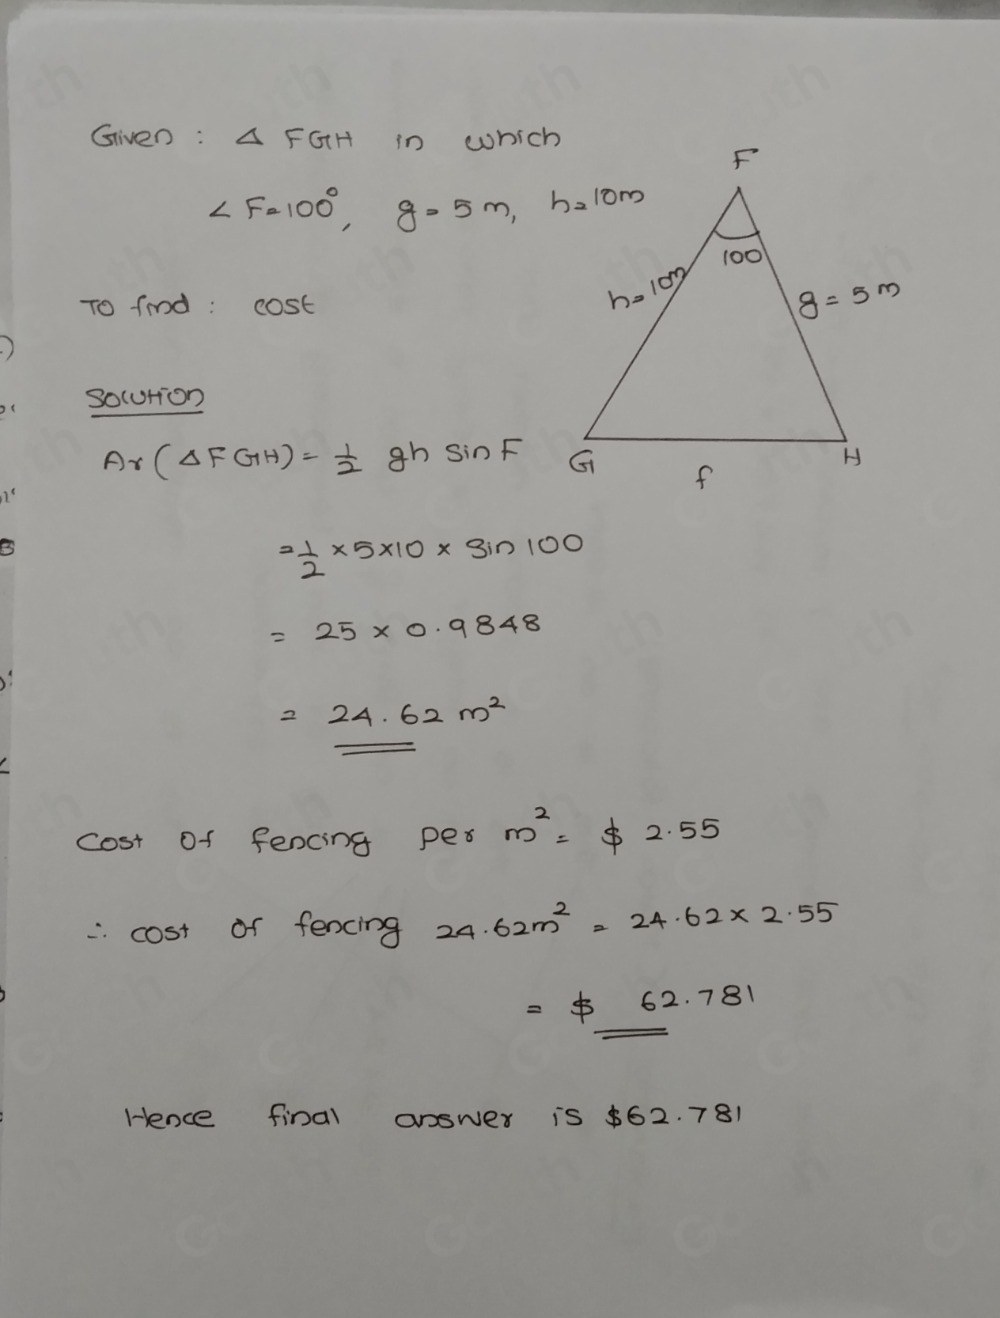 Given : △ FGH in which
∠ F = 100°, g = 5 m, h = 10m
F
100
h = 10m
g = 5 m
G
H
f
To find : cost
Solution
Ar ( △ FGH) = 1/2 gh sin F
= 1/2 × 5×10 × Sin 100
= 25 × 0.9848
= 24.62 m²
Cost of fencing per m² = $ 2.55
∴ cost of fencing 24.62m² = 24.62 × 2.55
= $ 62.781
Hence final answer is $62.781